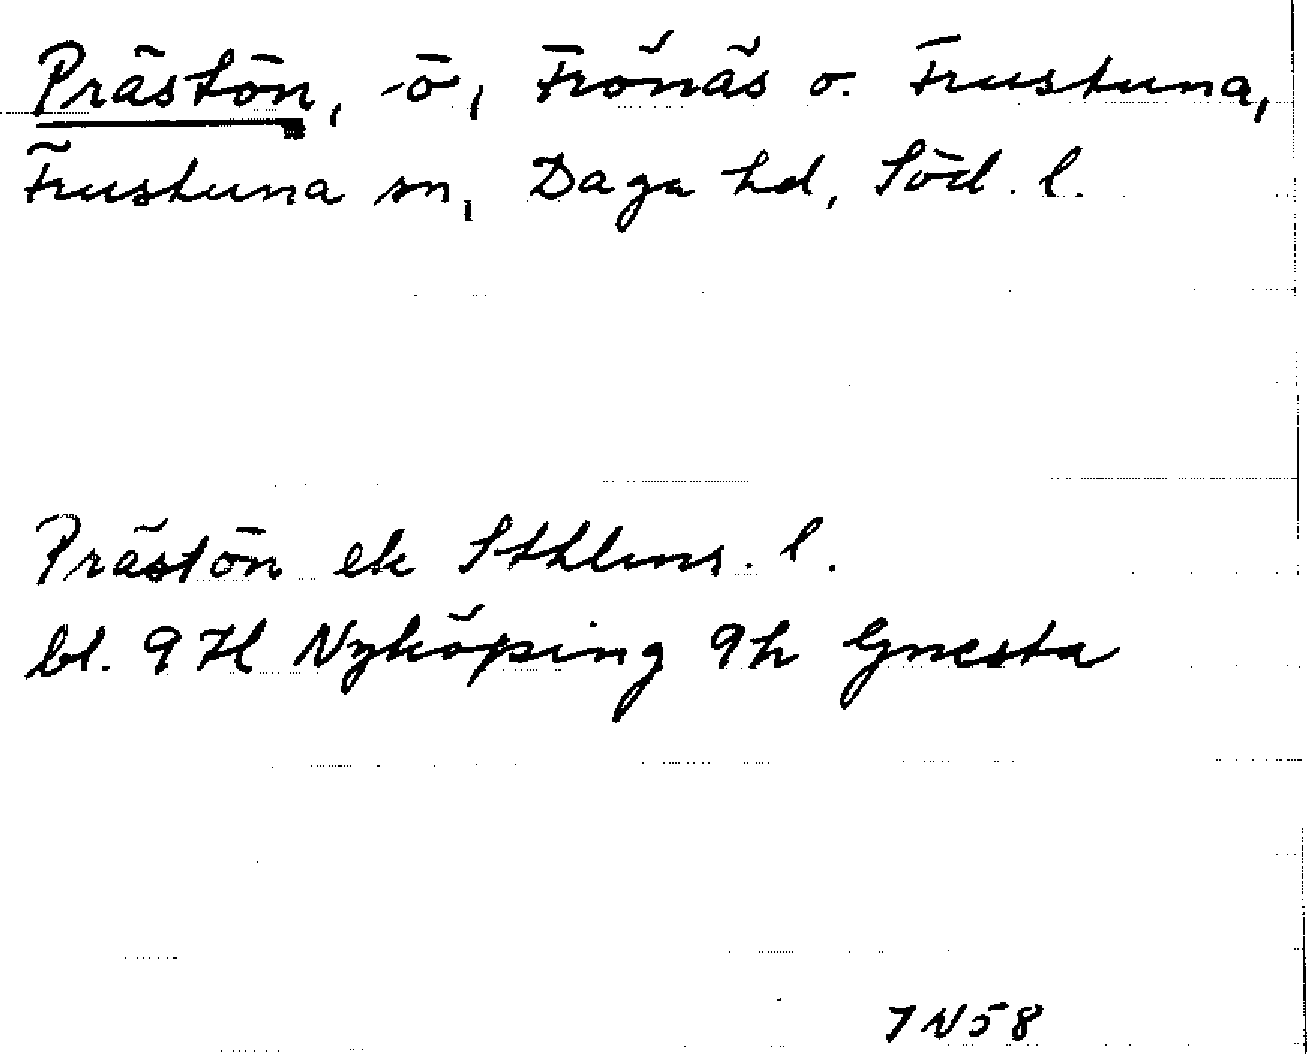 Prästön, ö, Frönäs o. Frustuna,
Frustuna sn, Daga hd, Söd. l.
Prästön ek Sthlms. l.
bl. 9 H Nyköping 9h Gnesta
7 N 58